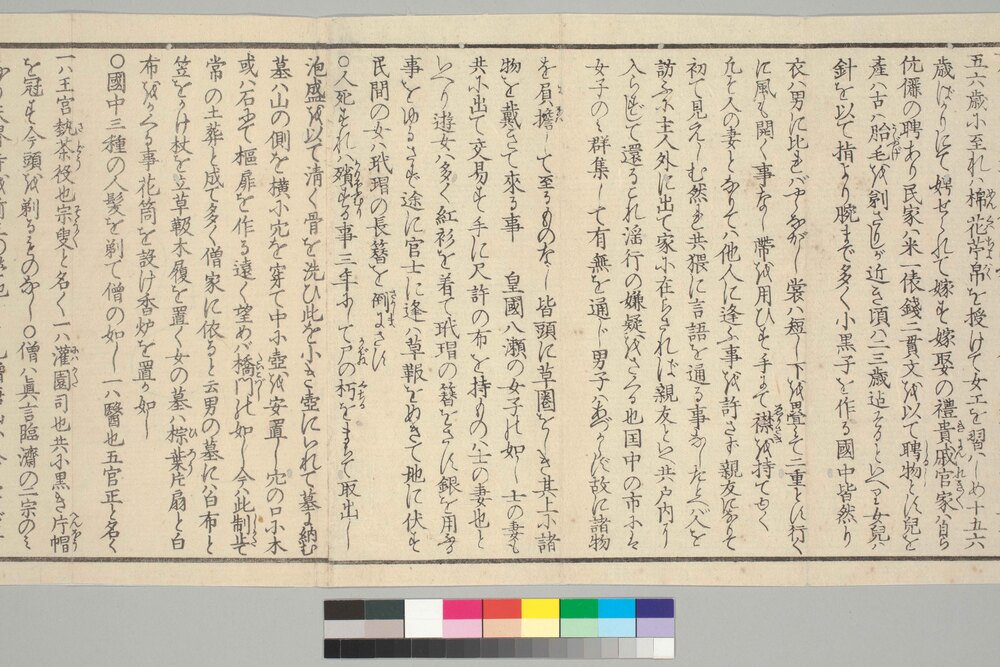 五六歳に至れハ棉花苧帛を授けて女工を習ハしめ十五六
歳ばかりにて娉せられて嫁す嫁娶の禮貴戚官家ハ自ら
伉儷の聘あり民家ハ米一俵錢二貫文を以て聘物とす兒を
産ハ古ハ胎毛を剃さりしが近き頃ハ二三歳迠そるといへり女兒ハ
針を以て指より腕まで多く小黒子を作る國中皆然り
衣ハ男に比すれバやゝながし裳ハ短し下を疊て二重とす行く
に風も開く事なし帶を用ひす手にて襟を持てゆく
凡を人の妻となりてハ他人に逢ふ事を許さす親友になりて
初て見えしむ然も共猥に言語を通る事なしたとへハ人を
訪ふに主人外に出て家に在らされば親友といへ共戸内に
入らずして還るこれ淫行の嫌疑をさくる也国中の市にハ
女子のミ群集して有無を通じ男子ハあづからず故に諸物
を負擔して至るものなし皆頭に草圏をしき其上に諸
物を戴きて來る事 皇國八瀬の女子の如し 士の妻も
共に出て交易す手に尺許の布を持ものハ士の妻也と
いへり遊女ハ多く紅衫を着て玳瑁の簪をさす銀を用る
事をゆるさす途に官士に逢ハ草鞋をぬきて地に伏す
民間の女ハ玳瑁の長簪を倒にさす
〇人死すれハ殯する事三年にして尸の朽をまちて取出し
泡盛を以て清く骨を洗ひ此を小き壺にいれて墓に納む
墓ハ山の側を横に穴を穿て中に壺を安置し穴の口に木
或ハ石にて樞扉を作る遠く望めバ橋門の如し今ハ此制止て
常の土葬と成て多く僧家に依ると云男の墓にハ白布と
笠をかけ杖を立草鞋木履を置く女の墓ハ棕葉片扇と白
布をかくる事花筒を設け香炉を置か如し
〇國中三種の人髪を剃て僧の如し一ハ醫也五官正と名く
一ハ王宮執茶役也宗叟と名く一ハ灌園司也共に黒き片帽
を冠す今頭を剃るものなし〇僧ハ眞言臨濟の二宗のミ